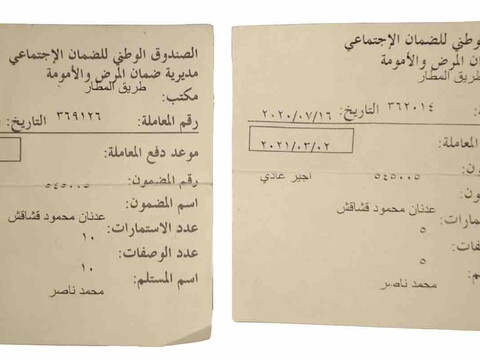 الصندوق الوطني للضمان الإجتماعي
مديرية ضمان المرض والأمومة
طريق المطار
مكتب:
رقم المعاملة: ٣٦٩١٢٦ التاريخ:
موعد دفع المعاملة:
رقم المضمون: ٥٤٥٠٠٥
اسم المضمون:
عدنان محمود قشاقش
عدد الاستمارات:
١٠
عدد الوصفات:
١٠
اسم المستلم:
محمد ناصر
وطني للضمان الإجتماعي
ن المرض والأمومة
طريق المطار
٣٦٢٠١٤ التاريخ: ٢٠٢٠/٠٧/١٦
المعاملة: ٢٠٢١/٠٣/٠٢
ون: ٥٤٥٠٠٥ اجير عادي
ون:
عدنان محمود قشاقش
تمارات:
٥
صفات:
٥
تلم:
محمد ناصر